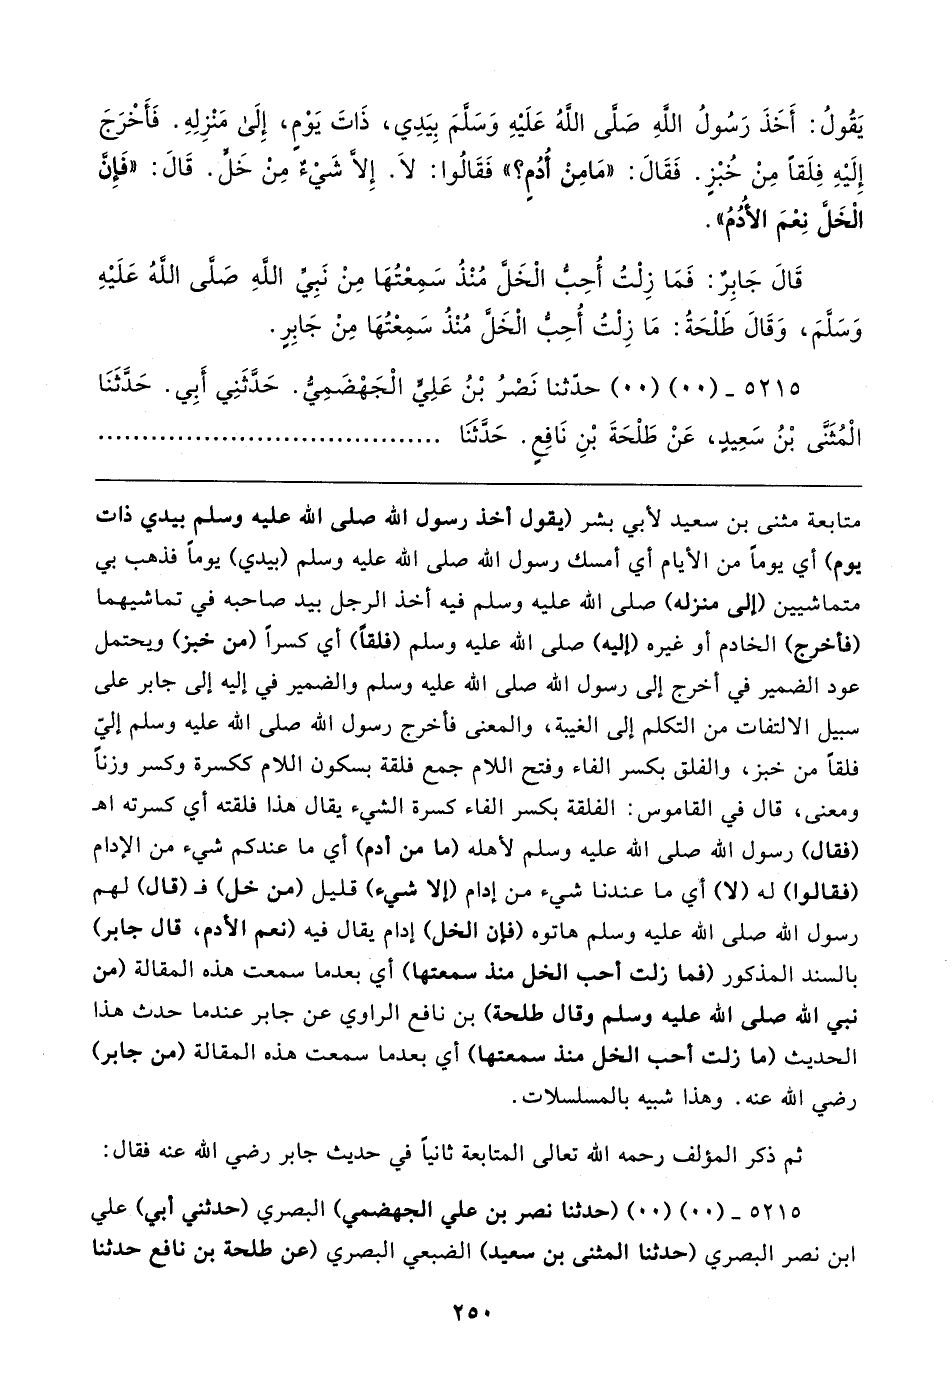 يَقُولُ: أَخَذَ رَسُولُ اللَّهِ صَلَّى اللَّهُ عَلَيْهِ وَسَلَّمَ بِيَدِي، ذَاتَ يَوْمٍ، إِلَىٰ مَنْزِلِهِ. فَأَخْرَجَ
إِلَيْهِ فِلَقاً مِنْ خُبْزٍ. فَقَالَ: «مَامِنْ أُدُمٍ؟» فَقَالُوا: لاَ. إِلاَّ شَيْءٌ مِنْ خَلٍّ. قَالَ: «فَإِنَّ
الْخَلَّ نِعْمَ الأُدُمُ».
قَالَ جَابِرٌ: فَمَا زِلْتُ أُحِبُّ الْخَلَّ مُنْذُ سَمِعْتُهَا مِنْ نَبِيِّ اللَّهِ صَلَّى اللَّهُ عَلَيْهِ
وَسَلَّمَ، وَقَالَ طَلْحَةُ: مَا زِلْتُ أُحِبُّ الْخَلَّ مُنْذُ سَمِعْتُهَا مِنْ جَابِرٍ.
٥٢١٥ ـ (٠٠) (٠٠) حدّثنا نَصْرُ بْنُ عَلِيٍّ الْجَهْضَمِيُّ. حَدَّثَنِي أَبِي. حَدَّثَنَا
الْمُثَنَّى بْنُ سَعِيدٍ، عَنْ طَلْحَةَ بْنِ نَافِعٍ. حَدَّثَنَا .......................................
متابعة مثنى بن سعيد لأبي بشر (يقول أخذ رسول الله صلى الله عليه وسلم بيدي ذات
يوم) أي يوماً من الأيام أي أمسك رسول الله صلى الله عليه وسلم (بيدي) يوماً فذهب بي
متماشيين (إلى منزله) صلى الله عليه وسلم فيه أخذ الرجل بيد صاحبه في تماشيهما
(فأخرج) الخادم أو غيره (إليه) صلى الله عليه وسلم (فلقاً) أي كسراً (من خبز) ويحتمل
عود الضمير في أخرج إلى رسول الله صلى الله عليه وسلم والضمير في إليه إلى جابر على
سبيل الالتفات من التكلم إلى الغيبة، والمعنى فأخرج رسول الله صلى الله عليه وسلم إليّ
فلقاً من خبز، والفلق بكسر الفاء وفتح اللام جمع فلقة بسكون اللام ككسرة وكسر وزناً
ومعنى، قال في القاموس: الفلقة بكسر الفاء كسرة الشيء يقال هذا فلقته أي كسرته اهـ
(فقال) رسول الله صلى الله عليه وسلم لأهله (ما من أدم) أي ما عندكم شيء من الإدام
(فقالوا) له (لا) أي ما عندنا شيء من إدام (إلا شيء) قليل (من خل) فـ (قال) لهم
رسول الله صلى الله عليه وسلم هاتوه (فإن الخل) إدام يقال فيه (نعم الأدم، قال جابر)
بالسند المذكور (فما زلت أحب الخل منذ سمعتها) أي بعدما سمعت هذه المقالة (من
نبي الله صلى الله عليه وسلم وقال طلحة) بن نافع الراوي عن جابر عندما حدث هذا
الحديث (ما زلت أحب الخل منذ سمعتها) أي بعدما سمعت هذه المقالة (من جابر)
رضي الله عنه. وهذا شبيه بالمسلسلات.
ثم ذكر المؤلف رحمه الله تعالى المتابعة ثانياً في حديث جابر رضي الله عنه فقال:
٥٢١٥ ـ (٠٠) (٠٠) (حدثنا نصر بن علي الجهضمي) البصري (حدثني أبي) علي
ابن نصر البصري (حدثنا المثنى بن سعيد) الضبعي البصري (عن طلحة بن نافع حدثنا
٢٥٠